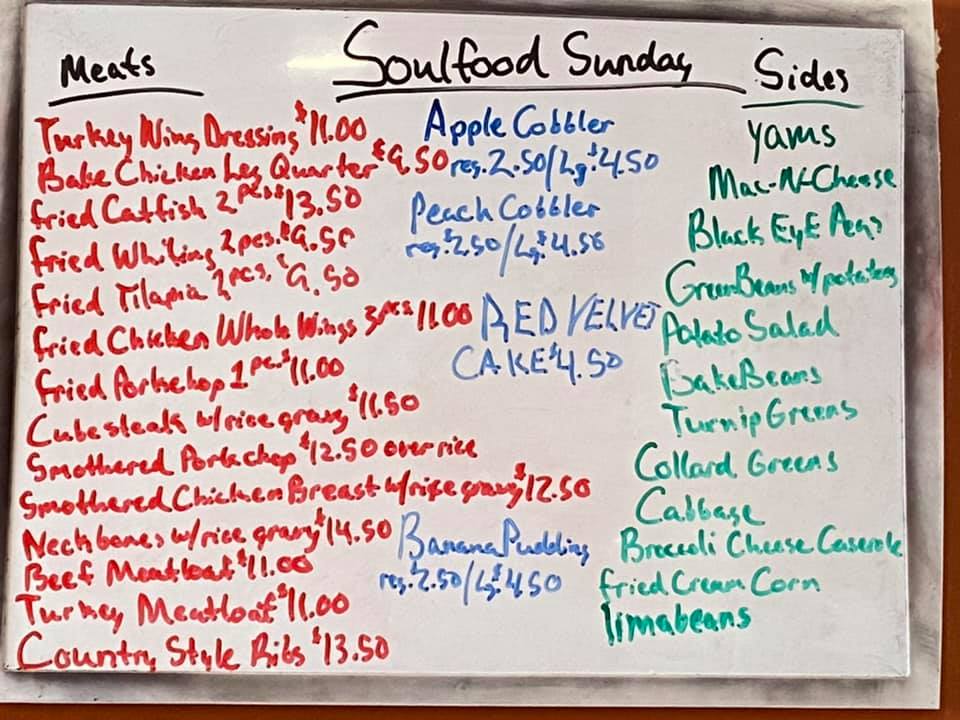 Soulfood Sunday
Meats
Turkey Wing Dressing $11.00
Bake Chicken Leg Quarter $9.50
fried Catfish 2pcs $13.50
Fried Whiting 2pcs. $9.50
Fried Tilapia 2pcs. $9.50
fried Chicken Whole Wings 3pcs 11.00
Fried Porkchop 1pc. $11.00
Cubesteak w/rice gravy $11.50
Smothered Porkchop $12.50 over rice
Smothered Chicken Breast w/rice gravy $12.50
Neckbones w/rice gravy $14.50
Beef Meatloaf $11.00
Turkey Meatloaf $11.00
Country Style Ribs $13.50
Apple Cobbler
reg. 2.50/Lg. $4.50
Peach Cobbler
reg. $2.50/Lg. $4.50
RED VELVET
CAKE $4.50
Banana Pudding
reg. $2.50/Lg. $4.50
Sides
yams
Mac-N-Cheese
Black EyE Peas
GreenBeans w/potatoes
Potato Salad
BakeBeans
Turnip Greens
Collard Greens
Cabbage
Broccoli Cheese Caserole
fried Cream Corn
limabeans